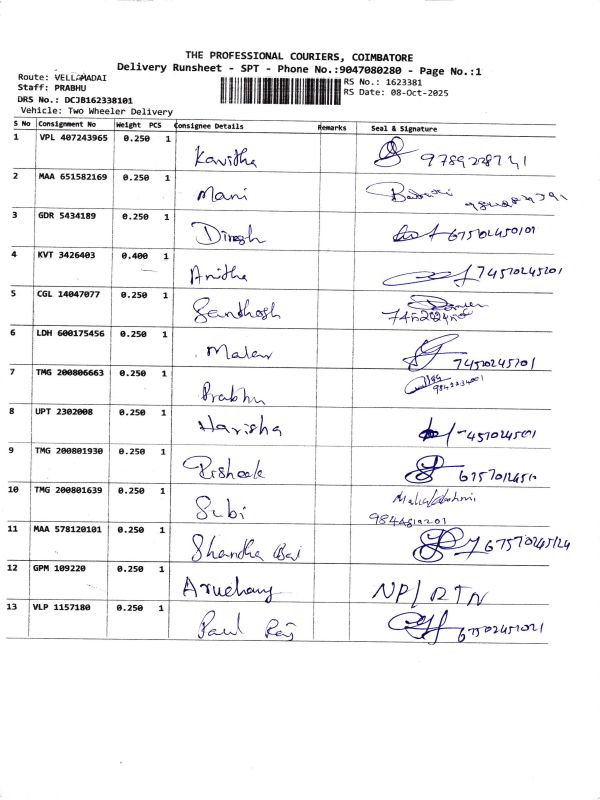 THE PROFESSIONAL COURIERS, COIMBATORE
Delivery Runsheet - SPT - Phone No.:9047080280 - Page No.:1
Route: VELLAMADAI
RS No.: 1623381
Staff: PRABHU
RS Date: 08-Oct-2025
DRS No.: DCJB162338101
Vehicle: Two Wheeler Delivery
S No Consignment No Weight PCS Consignee Details Remarks Seal & Signature
1 VPL 407243965 0.250 1 Kavitha
2 MAA 651582169 0.250 1 Mani
3 GDR 5434189 0.250 1 Dinesh
4 KVT 3426403 0.400 1 Anitha 74570245201
5 CGL 14047077 0.250 1 Santhosh
6 LDH 600175456 0.250 1 Malar 7450245201
7 TMG 200806663 0.250 1 Prabhu
8 UPT 2302008 0.250 1 Harisha
9 TMG 200801930 0.250 1
10 TMG 200801639 0.250 1 Subi
11 MAA 578120101 0.250 1 Shantha Bai
12 GPM 109220 0.250 1 NP/RTN
13 VLP 1157180 0.250 1 Paul Raj